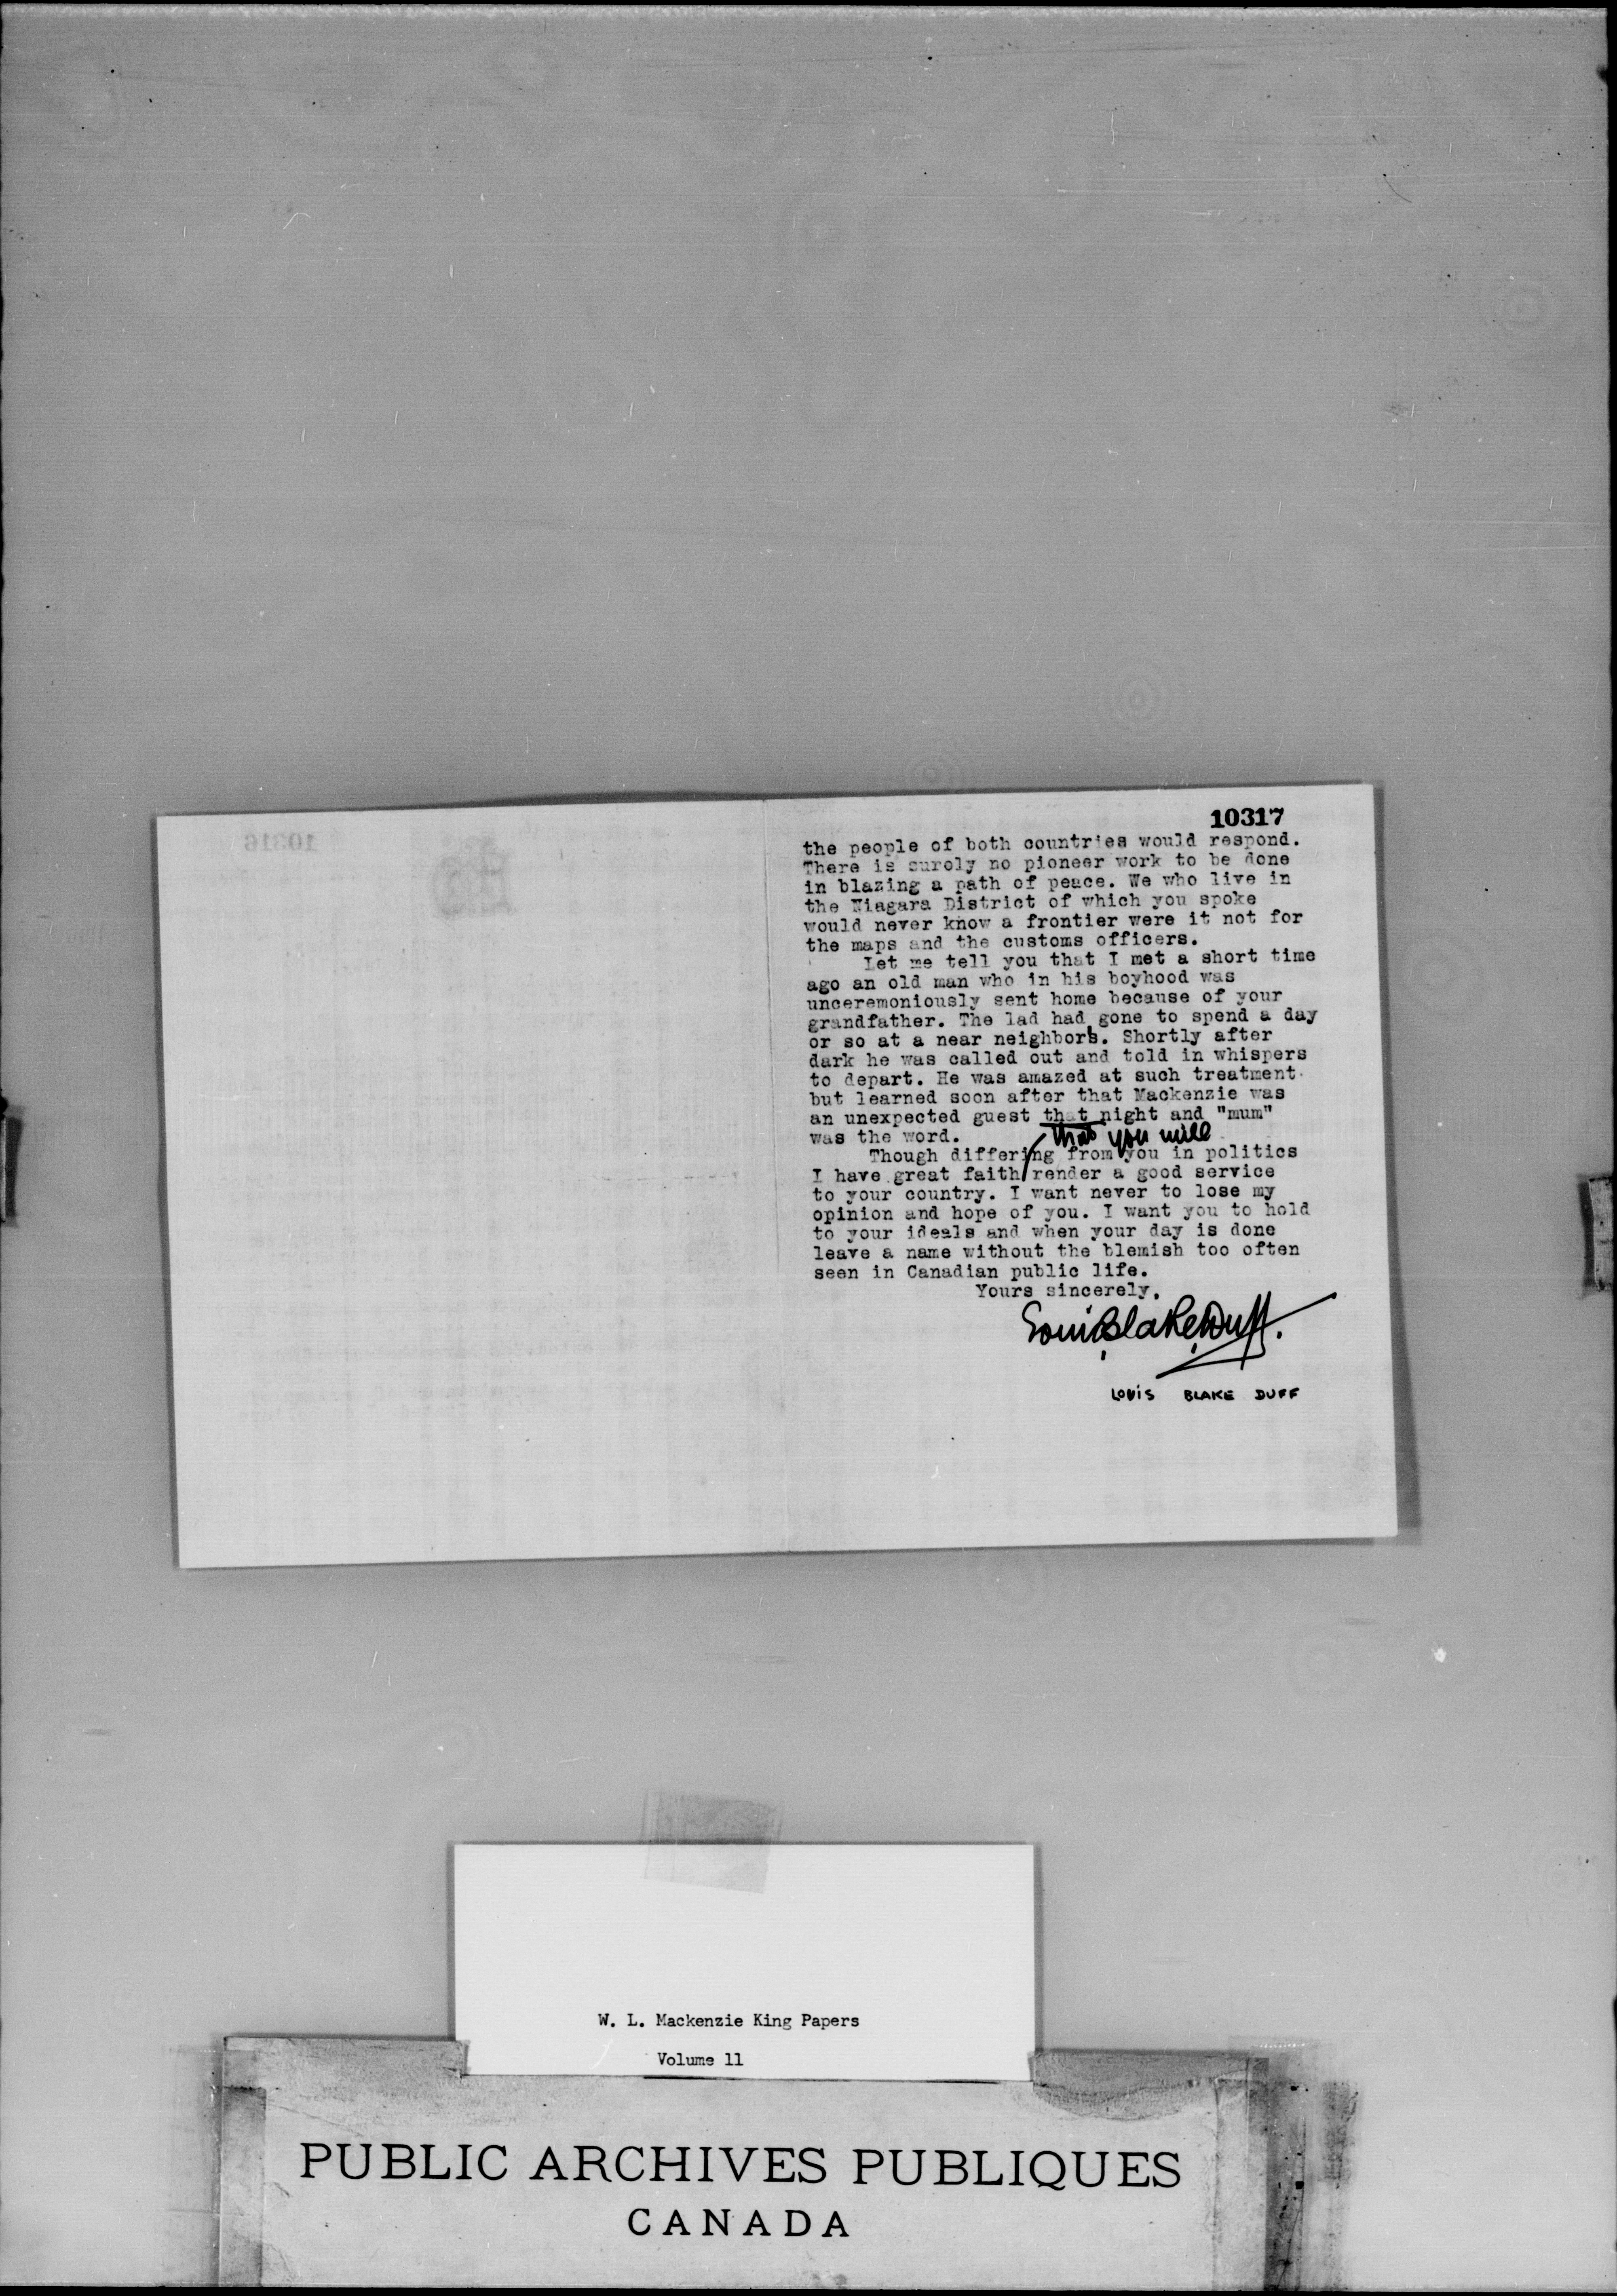 10317
10316
the people of both countries would respond.
There is surely no pioneer work to be done
in blazing a path of peace. We who live in
the Niagara District of which you spoke
would never know a frontier were it not for
the maps and the customs officers.
Let me tell you that I met a short time
ago an old man who in his boyhood was
unceremoniously sent home because of your
grandfather. The lad had gone to spend a day
or so at a near neighbor's. Shortly after
dark he was called out and told in whispers
to depart. He was amazed at such treatment
but learned soon after that Mackenzie was
an unexpected guest that night and "mum"
was the word.
that you will
Though differing from you in politics
I have great faith render a good service
to your country. I want never to lose my
opinion and hope of you. I want you to hold
to your ideals and when your day is done
leave a name without the blemish too often
seen in Canadian public life.
Yours sincerely,
Louis Blake Duff.
LOUIS BLAKE DUFF
W. L. Mackenzie King Papers
Volume 11
PUBLIC ARCHIVES PUBLIQUES
CANADA